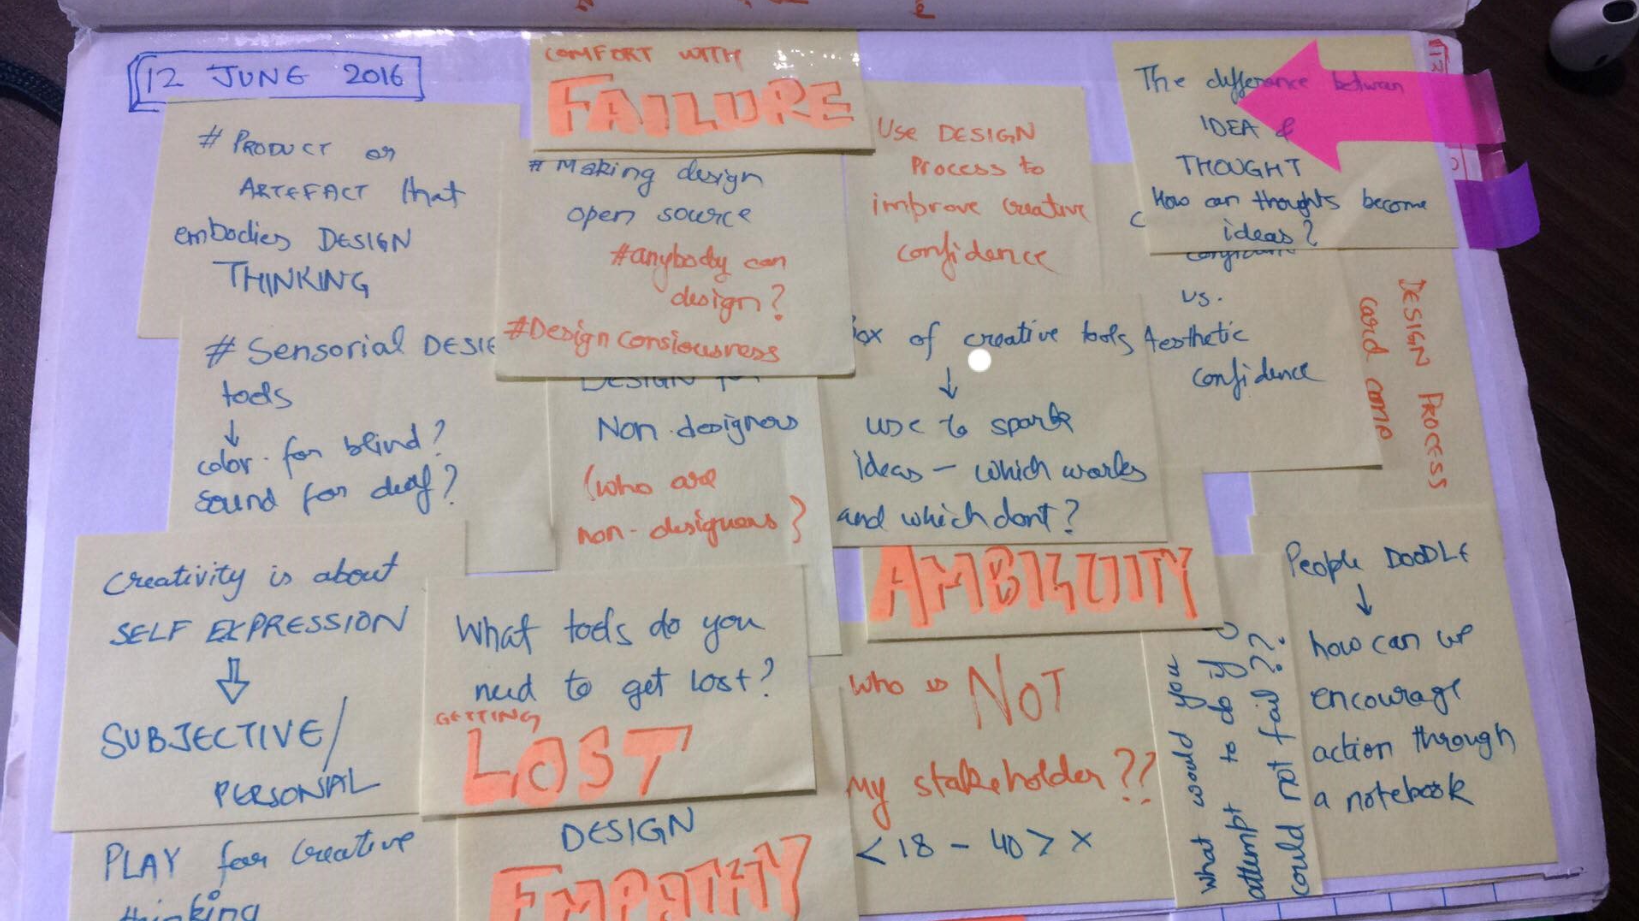 12 JUNE 2016
# PRODUCT or
ARTEFACT that
embodies DESIGN
THINKING
COMFORT WITH
FAILURE
# Making design
open source
#anybody can
design?
#Design consiousness
USE DESIGN
Process to
improve Creative
confidence
The difference between
IDEA &
THOUGHT
How can thoughts become
ideas?
confidence
vs.
Aesthetic
confidence
DESIGN PROCESS
card camp
# Sensorial DESI
tools
↓
color for blind?
sound for deaf?
DESIGN for
Non designers
(who are
non-designers)
ox of creative tools
↓
use to spark
ideas – which works
and which dont?
AMBIGUITY
Creativity is about
SELF EXPRESSION
⇓
SUBJECTIVE/
PERSONAL
What tools do you
need to get lost?
GETTING
LOST
who is NOT
My stakeholder??
<18 - 40> x
what would you
attempt to do if u
could not fail??
People DOODLE
↓
how can we
encourage
action through
a notebook
PLAY for Creative
thinking
DESIGN
EMPATHY